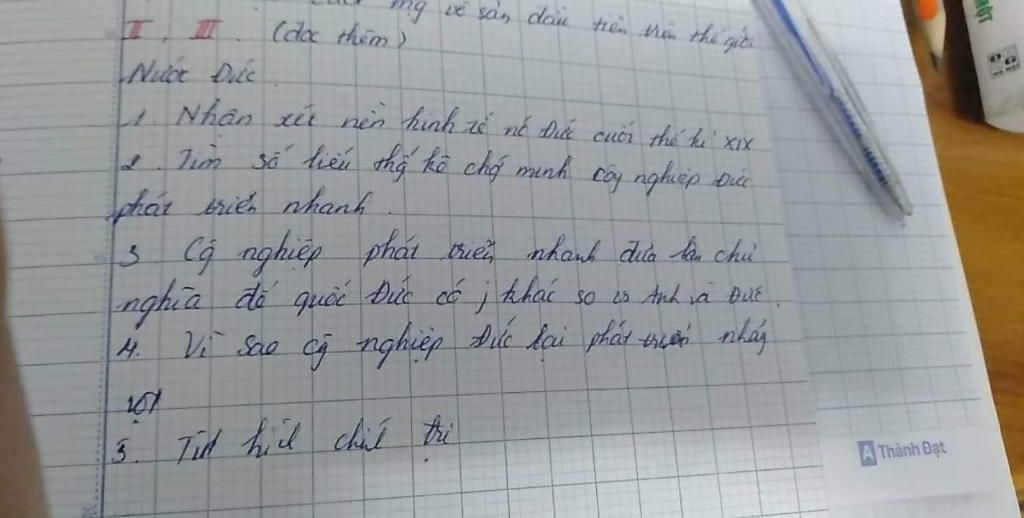 mg vô sản đầu tiên trên thế giới
II, III. (đọc thêm)
Nước Đức
1. Nhận xét nền kinh tế nc Đức cuối thế kỉ XIX
2. Tìm số liệu thố kê chứ minh côg nghiệp Đức
phát triển nhanh.
3 Cg nghiệp phát triển nhanh đưa chủ
nghĩa đế quốc Đức có j khác so vs Anh và Đức.
4. Vì sao cg nghiệp Đức lại phát triển nhảy
vọt
5. Tìn hìh chíh trị
A Thành Đạt